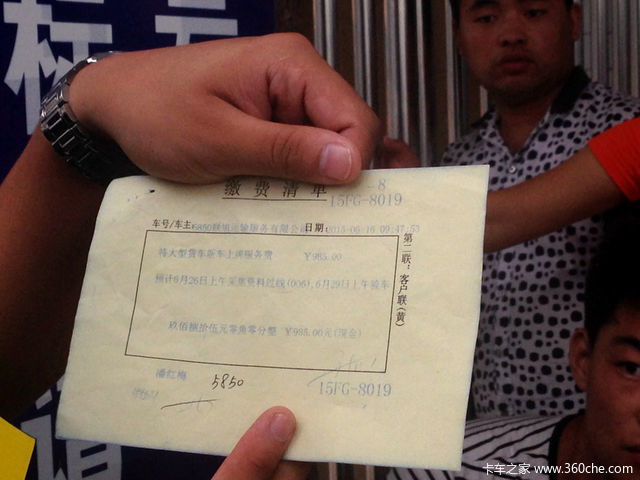 标
缴费清单
-8
15FG-8019
车号/车主:5850联旗运输服务有限公 日期:2015-06-16 09:47:53
特大型货车新车上牌服务费 ￥985.00
预计6月26日上午采集资料过线(006),6月29日上午验车
玖佰捌拾伍元零角零分整 ￥985.00元(现金)
第二联:客户联(黄)
潘红梅
5850
15FG-8019
卡车之家 www.360che.com